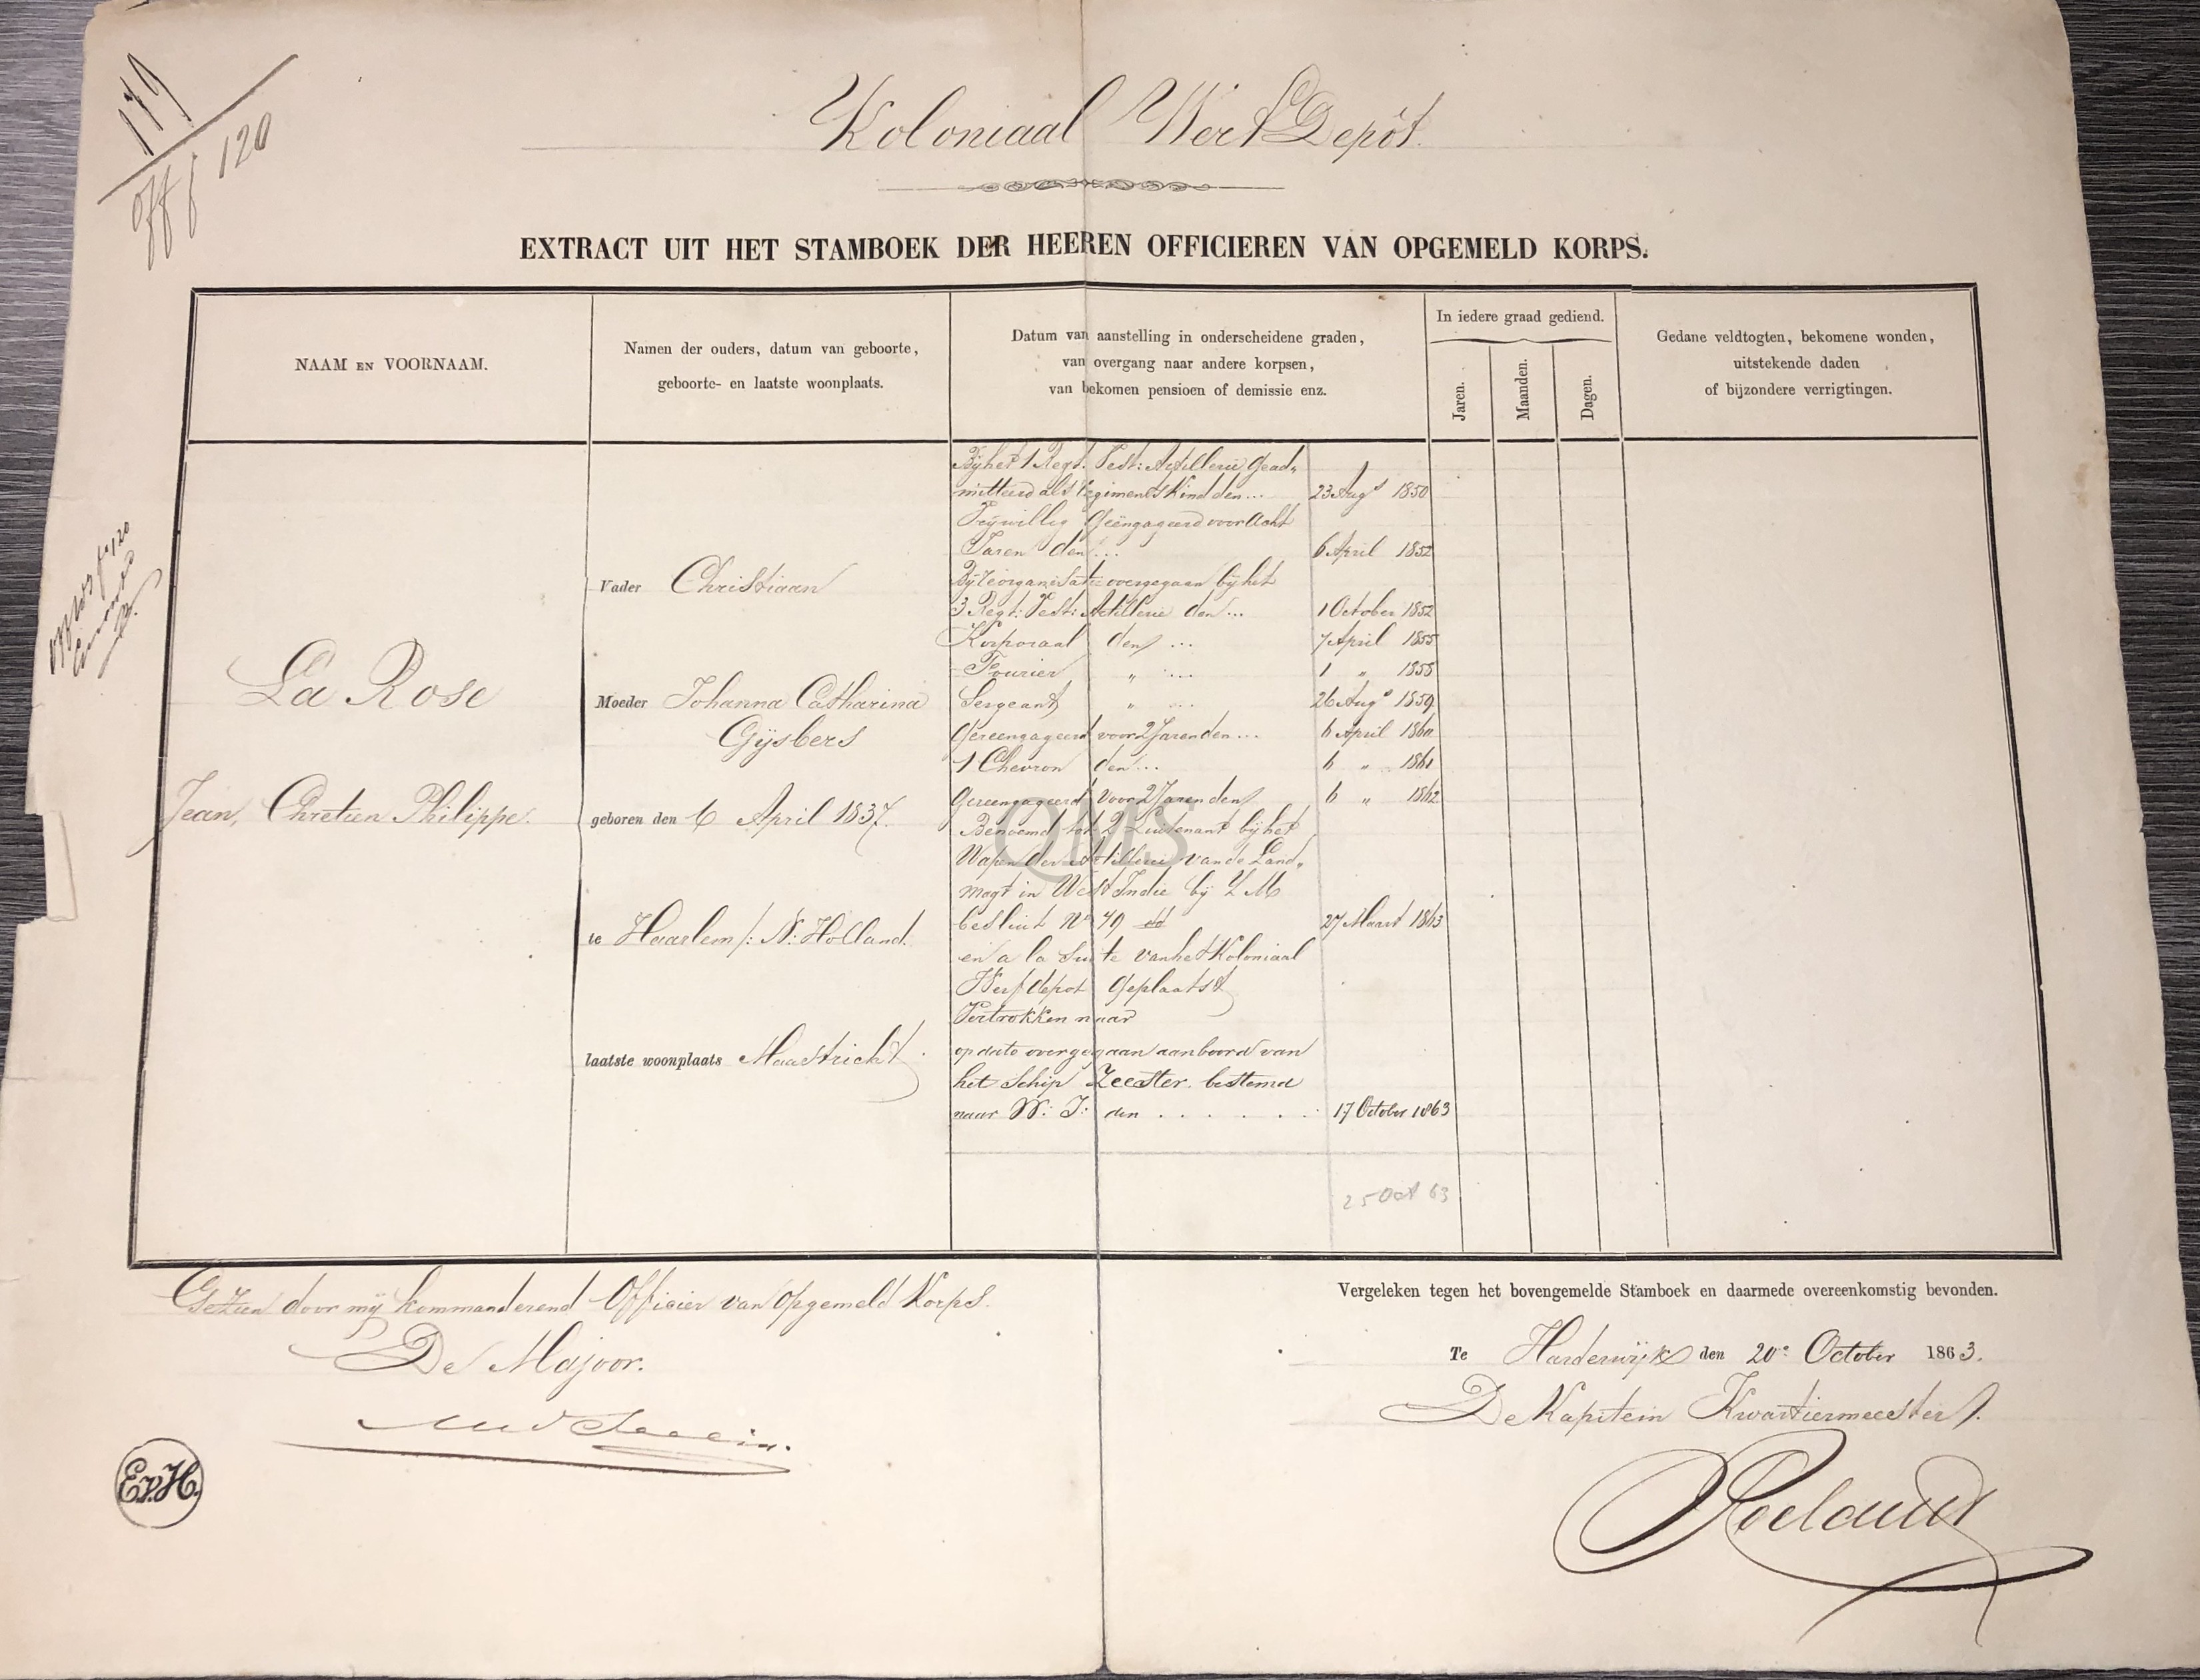 119
Off f 120
Koloniaal Werf Depôt.
EXTRACT UIT HET STAMBOEK DER HEEREN OFFICIEREN VAN OPGEMELD KORPS.
NAAM EN VOORNAAM.
Namen der ouders, datum van geboorte,
geboorte- en laatste woonplaats.
Datum van aanstelling in onderscheidene graden,
van overgang naar andere korpsen,
van bekomen pensioen of demissie enz.
In iedere graad gediend.
Jaren.
Maanden.
Dagen.
Gedane veldtogten, bekomene wonden,
uitstekende daden
of bijzondere verrigtingen.
La Rose
Jean, Chretien Philippe.
Vader Christiaan
Moeder Johanna Catharina
Gijsbers
geboren den 6 April 1837.
te Haarlem /: N: Holland.
laatste woonplaats Maastricht
Bij het 1 Regt. Vest: Artillerie Gead„
mitteerd als Regiments Kind den... 23 Augs 1850
Vrijwillig Geëngageerd voor Acht
Jaren den... 6 April 1852
Bij reorganisatie overgegaan bij het
3 Regt: Vest: Artillerie den... 1 October 1852
Korporaal den ... 7 April 1855
Fourier „ ... 1 „ 1858
Sergeant „ ... 26 Augs 1859
Gereengageerd voor 2 Jaren den... 6 April 1860
1 Chevron den... 6 „ 1861
Gereengageerd voor 2 Jaren den 6 „ 1862
Benoemd tot 2 Luitenant bij het
Wapen der Artillerie van de Land„
magt in West Indie bij Z M
besluit No 49 dd 27 Maart 1863
en a la Suite van het Koloniaal
Werf depot Geplaatst
Vertrokken naar
op dato overgegaan aan boord van
het Schip Zeester bestemd
naar W: I: den . . . . . . 17 October 1863
25 Oct 63
QMS
Gezien door mij kommanderend Officier van opgemeld Korps.
De Majoor.
E.v.H.
Vergeleken tegen het bovengemelde Stamboek en daarmede overeenkomstig bevonden.
Te Harderwijk den 20e October 1863.
De Kapitein Kwartiermeester
Roelants